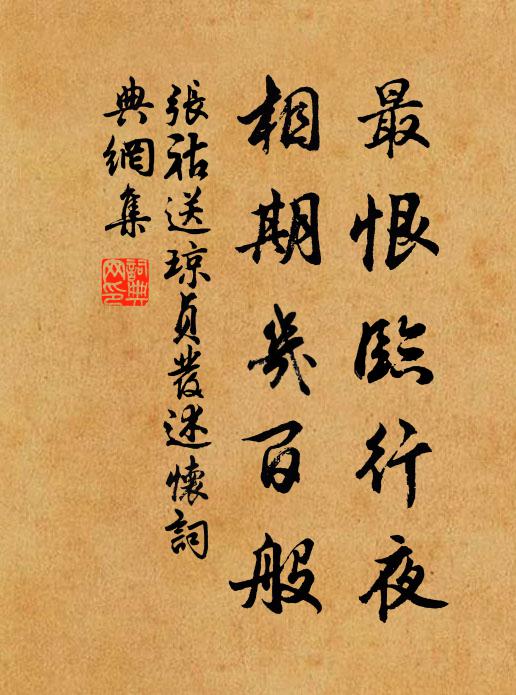 最恨臨行夜
相期幾百般
張祜送瓊貞發述懷詞
典網集
詞典網印